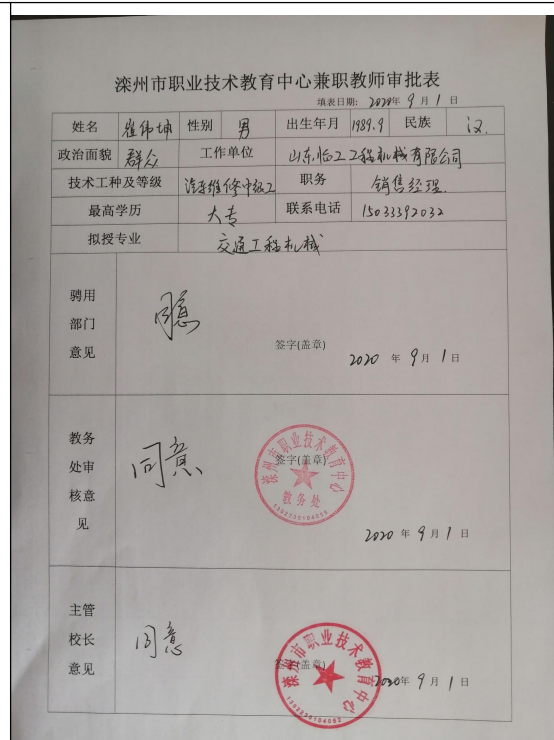 滦州市职业技术教育中心兼职教师审批表
填表日期: 2020年 9 月 1 日
姓名 崔伟坤 性别 男 出生年月 1989.9 民族 汉
政治面貌 群众 工作单位 山东临工工程机械有限公司
技术工种及等级 汽车维修中级工 职务 销售经理
最高学历 大专 联系电话 15033392032
拟授专业 交通工程机械
聘用
部门
意见
同意
签字(盖章)
2020 年 9 月 1 日
教务
处审
核意
见
同意
签字(盖章)
滦州市职业技术教育中心
教务处
2020 年 9 月 1 日
主管
校长
意见
同意
签字(盖章)
滦州市职业技术教育中心
2020年 9 月 1 日